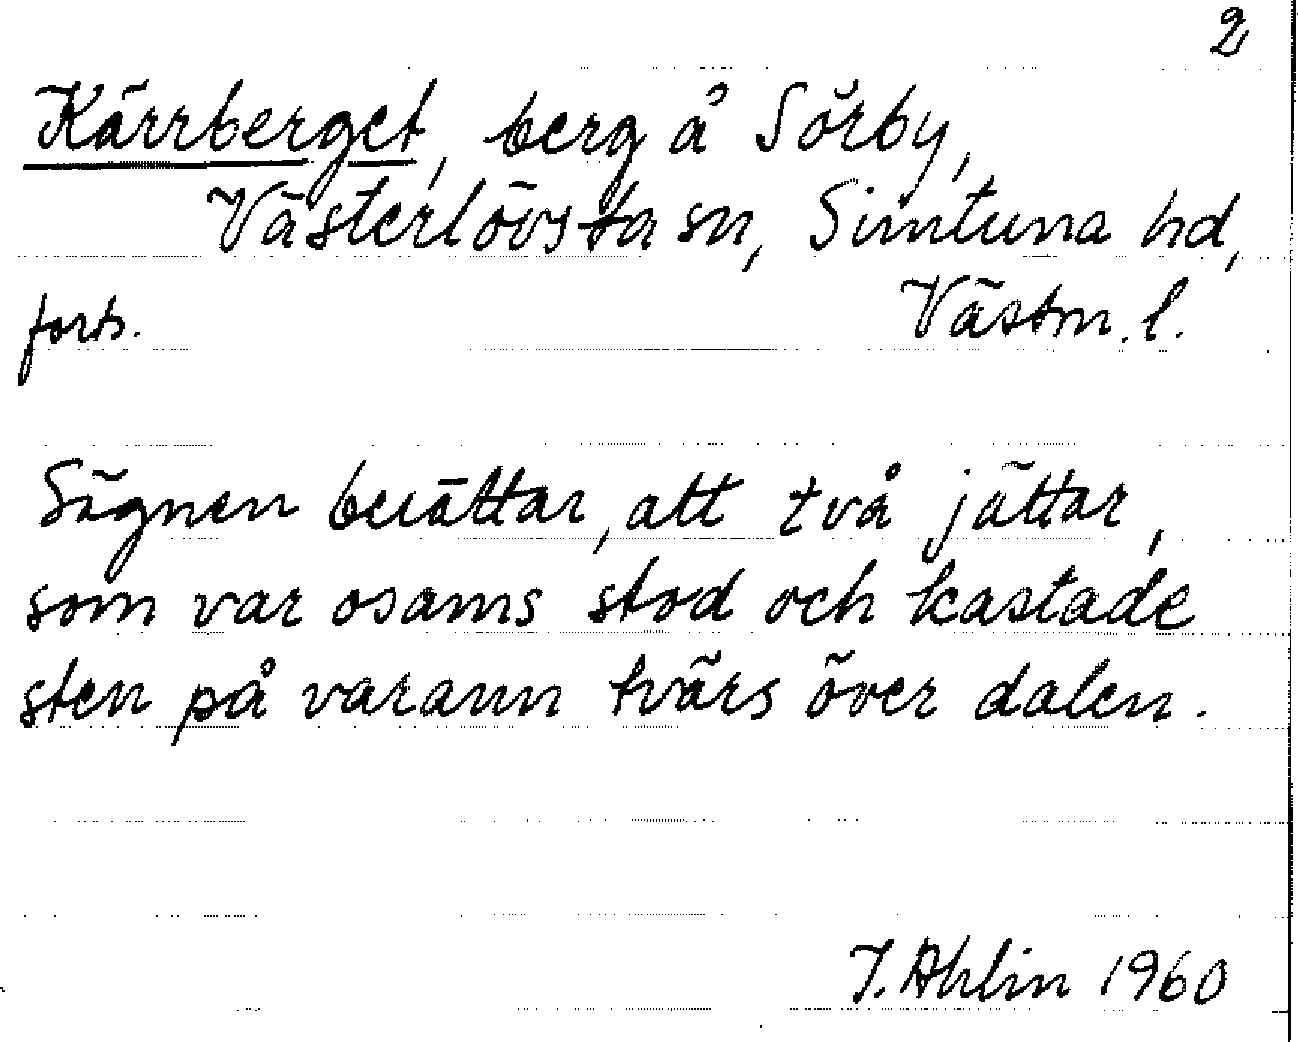 2
Kärrberget, berg å Sörby,
Västerlövsta sn, Simtuna hd,
forts. Västm. l.
Sägnen berättar, att två jättar,
som var osams stod och kastade
sten på varann tvärs över dalen.
I. Ahlin 1960